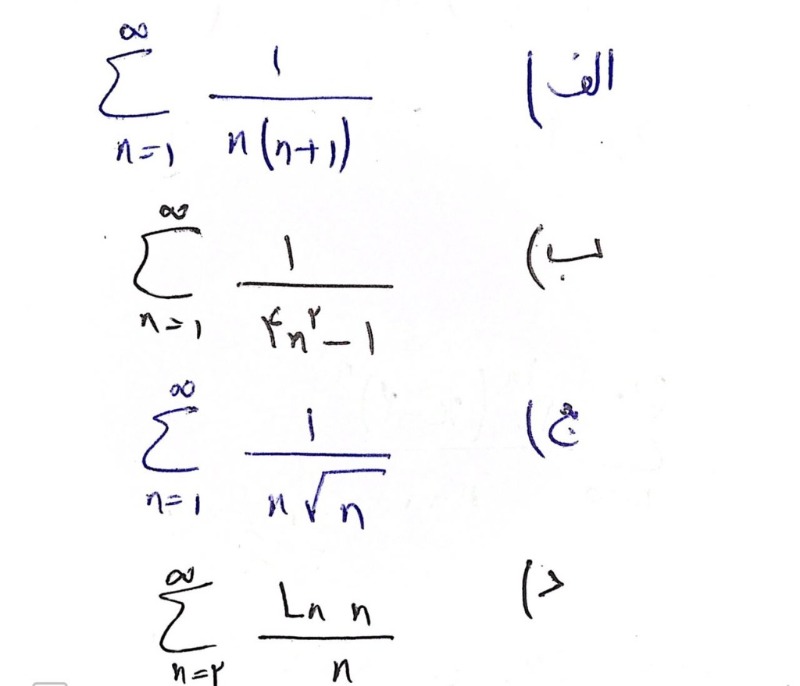 الف) ∑_{n=1}^{∞} ۱/(n(n+1))
ب) ∑_{n=1}^{∞} 1/(۴n^۲-1)
ج) ∑_{n=1}^{∞} 1/(n√n)
د) ∑_{n=۲}^{∞} Ln n/n